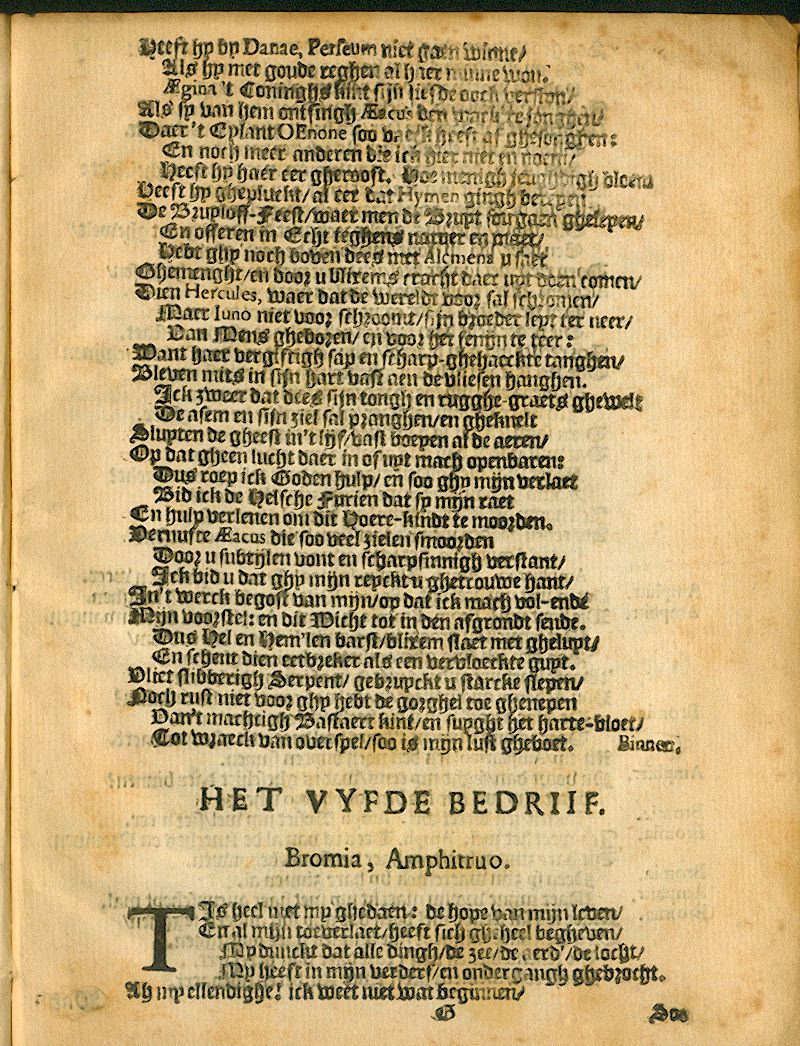 Heeft hy by Danae, Perseum niet gaen winne/
Als hy met goude reghen al haer minne won.
Ægina 't Coninghs kint sijn liefde oock verston/
Als sy van hem ontfingh Æacus den
Daer 't Eylant OEnone soo heeft af ghesonghen:
En noch meer anderen die ick hier niet en noem/
Heeft hy haer eer gherooft. Hoe menigh jeughdigh bloem
Heeft hy ghepluckt/ al eer dat Hymen gingh
De Bruyloff-Feest/ waer men de Bruyt sou gaen ghelepen/
En offeren in Echt teghens natuer en
Hebt ghy noch boven dees met Alcmena u saet
Ghemenght/ en door u blixems cracht daer uyt doen comen/
Dien Hercules, waer dat de wereldt voor sal schromen/
Maer Iuno niet voor schroomt/ sijn broeder leyt ter neer/
Van Mens gheboren/ en voor het fenijn te teer:
Want haer vergiftigh sap en scharp-ghehaeckte tanghen/
Bleven mits in sijn hart vast aen de vliesen hanghen.
Ick zweer dat dees sijn tongh en rugghe-graets ghewelt
De asem en sijn ziel sal pranghen/ en gheknelt
Sluyten de gheest in't lijf/ vast boeyen al de aeren/
Op dat gheen lucht daer in of uyt mach openbaren:
Dus roep ick Goden hulp/ en soo ghy mijn verlaet
Bid ick de Helsche Furien dat sy mijn raet
En hulp verlenen om dit Hoere-kindt te moorden.
Vernufte Æacus die soo veel zielen smoorden
Door u subtijlen vont en scharpsinnigh verstant/
Ick bid u dat ghy mijn reyckt u ghetrouwe hant/
In't werck begost van mijn/ op dat ick mach vol-ende
Mijn voorstel: en dit Wicht tot in den afgrondt sende.
Dus Hel en Hem'len barst/ blixem slaet met ghelupt/
En schent dien eetbreker als een vervloeckte guyt.
Vliet slibberigh Serpent/ gebruyckt u starcke slepen/
Noch rust niet voor ghy hebt de gorghel toe ghenepen
Van't machtigh Bastaert kint/ en suyght het harte-bloet/
Tot wraeck van overspel/ soo is mijn lust gheboet. Binnen.
HET VYFDE BEDRIIF.
Bromia, Amphitruo.
TIs heel met my ghedaen: de hope van mijn leven/
En al mijn toeverlaet/ heeft sich gheheel begheven/
My dunckt dat alle dingh/ de zee/ de aerd'/ de locht/
My heeft in mijn verderf/ en ondergangh ghebrocht.
Ah my ellendighe! ick weet niet wat beginnen/
G Soo